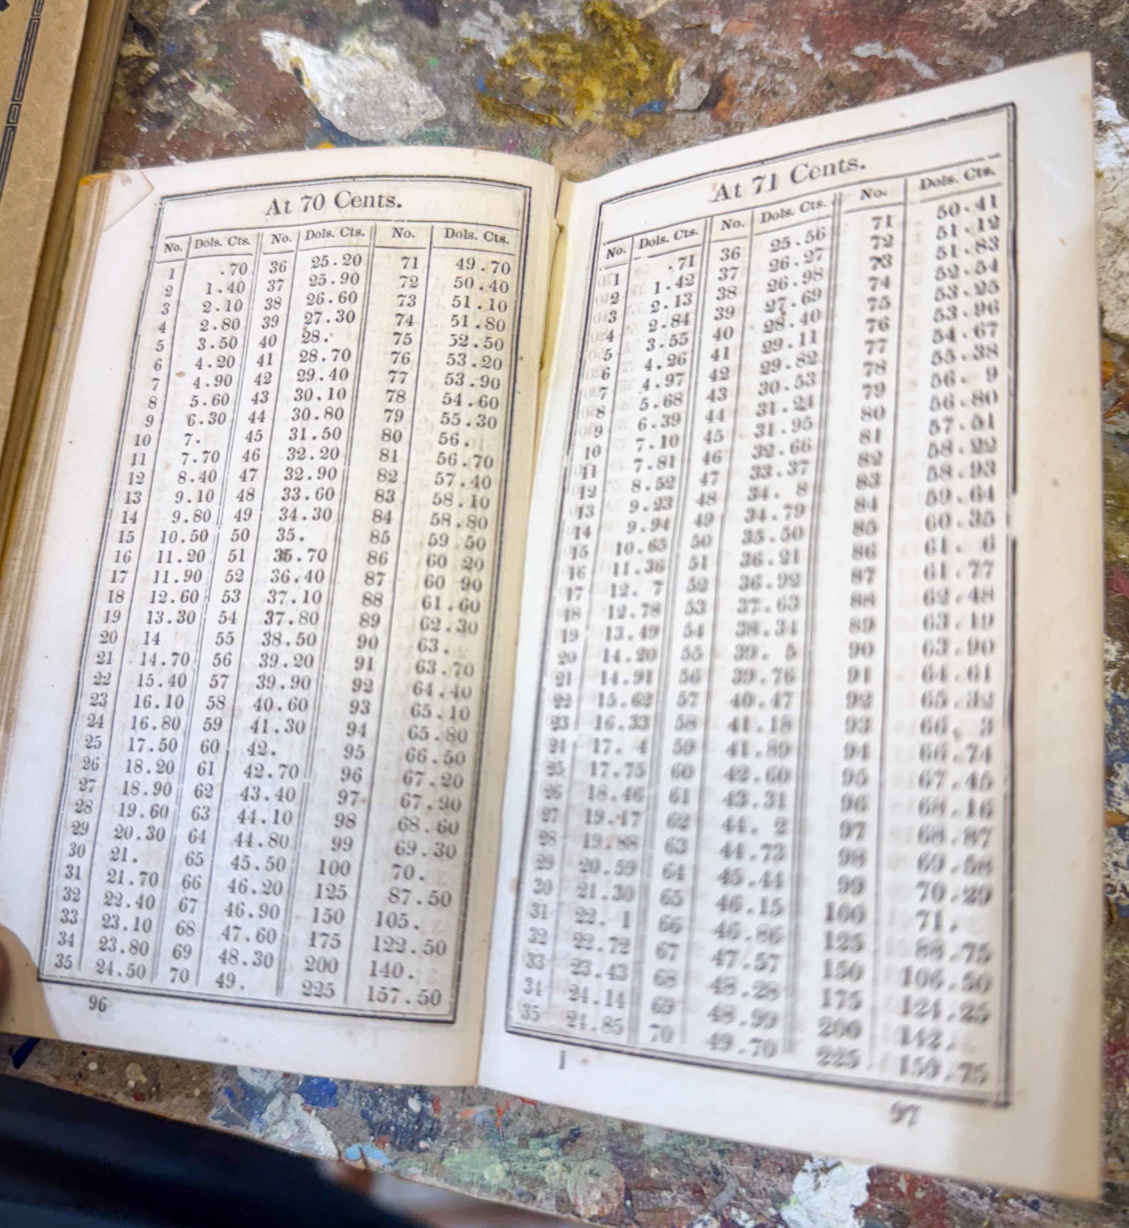 At 70 Cents.
No. Dols. Cts. No. Dols. Cts. No. Dols. Cts.
1 .70 36 25.20 71 49.70
2 1.40 37 25.90 72 50.40
3 2.10 38 26.60 73 51.10
4 2.80 39 27.30 74 51.80
5 3.50 40 28. 75 52.50
6 4.20 41 28.70 76 53.20
7 4.90 42 29.40 77 53.90
8 5.60 43 30.10 78 54.60
9 6.30 44 30.80 79 55.30
10 7. 45 31.50 80 56.
11 7.70 46 32.20 81 56.70
12 8.40 47 32.90 82 57.40
13 9.10 48 33.60 83 58.10
14 9.80 49 34.30 84 58.80
15 10.50 50 35. 85 59.50
16 11.20 51 35.70 86 60 20
17 11.90 52 36.40 87 60 90
18 12.60 53 37.10 88 61.60
19 13.30 54 37.80 89 62.30
20 14 55 38.50 90 63.
21 14.70 56 39.20 91 63.70
22 15.40 57 39.90 92 64.40
23 16.10 58 40.60 93 65.10
24 16.80 59 41.30 94 65.80
25 17.50 60 42. 95 66.50
26 18.20 61 42.70 96 67.20
27 18.90 62 43.40 97 67.90
28 19.60 63 44.10 98 68.60
29 20.30 64 44.80 99 69.30
30 21. 65 45.50 100 70.
31 21.70 66 46.20 125 87.50
32 22.40 67 46.90 150 105.
33 23.10 68 47.60 175 122.50
34 23.80 69 48.30 200 140.
35 24.50 70 49. 225 157.50
96
At 71 Cents.
No. Dols. Cts. No. Dols. Cts. No. Dols. Cts.
1 .71 36 25.56 71 50.41
2 1.42 37 26.27 72 51.12
3 2.13 38 26.98 73 51.83
4 2.84 39 27.69 74 52.54
5 3.55 40 28.40 75 53.25
6 4.26 41 29.11 76 53.96
7 4.97 42 29.82 77 54.67
8 5.68 43 30.53 78 55.38
9 6.39 44 31.24 79 56. 9
10 7.10 45 31.95 80 56.80
11 7.81 46 32.66 81 57.51
12 8.52 47 33.37 82 58.22
13 9.23 48 34. 8 83 58.93
14 9.94 49 34.79 84 59.64
15 10.65 50 35.50 85 60.35
16 11.36 51 36.21 86 61. 6
17 12. 7 52 36.92 87 61.77
18 12.78 53 37.63 88 62.48
19 13.49 54 38.34 89 63.19
20 14.20 55 39. 5 90 63.90
21 14.91 56 39.76 91 64.61
22 15.62 57 40.47 92 65.32
23 16.33 58 41.18 93 66. 3
24 17. 4 59 41.89 94 66.74
25 17.75 60 42.60 95 67.45
26 18.46 61 43.31 96 68.16
27 19.17 62 44. 2 97 68.87
28 19.88 63 44.73 98 69.58
29 20.59 64 45.44 99 70.29
30 21.30 65 46.15 100 71.
31 22. 1 66 46.86 125 88.75
32 22.72 67 47.57 150 106.50
33 23.43 68 48.28 175 124.25
34 24.14 69 48.99 200 142.
35 24.85 70 49.70 225 159.75
I
97